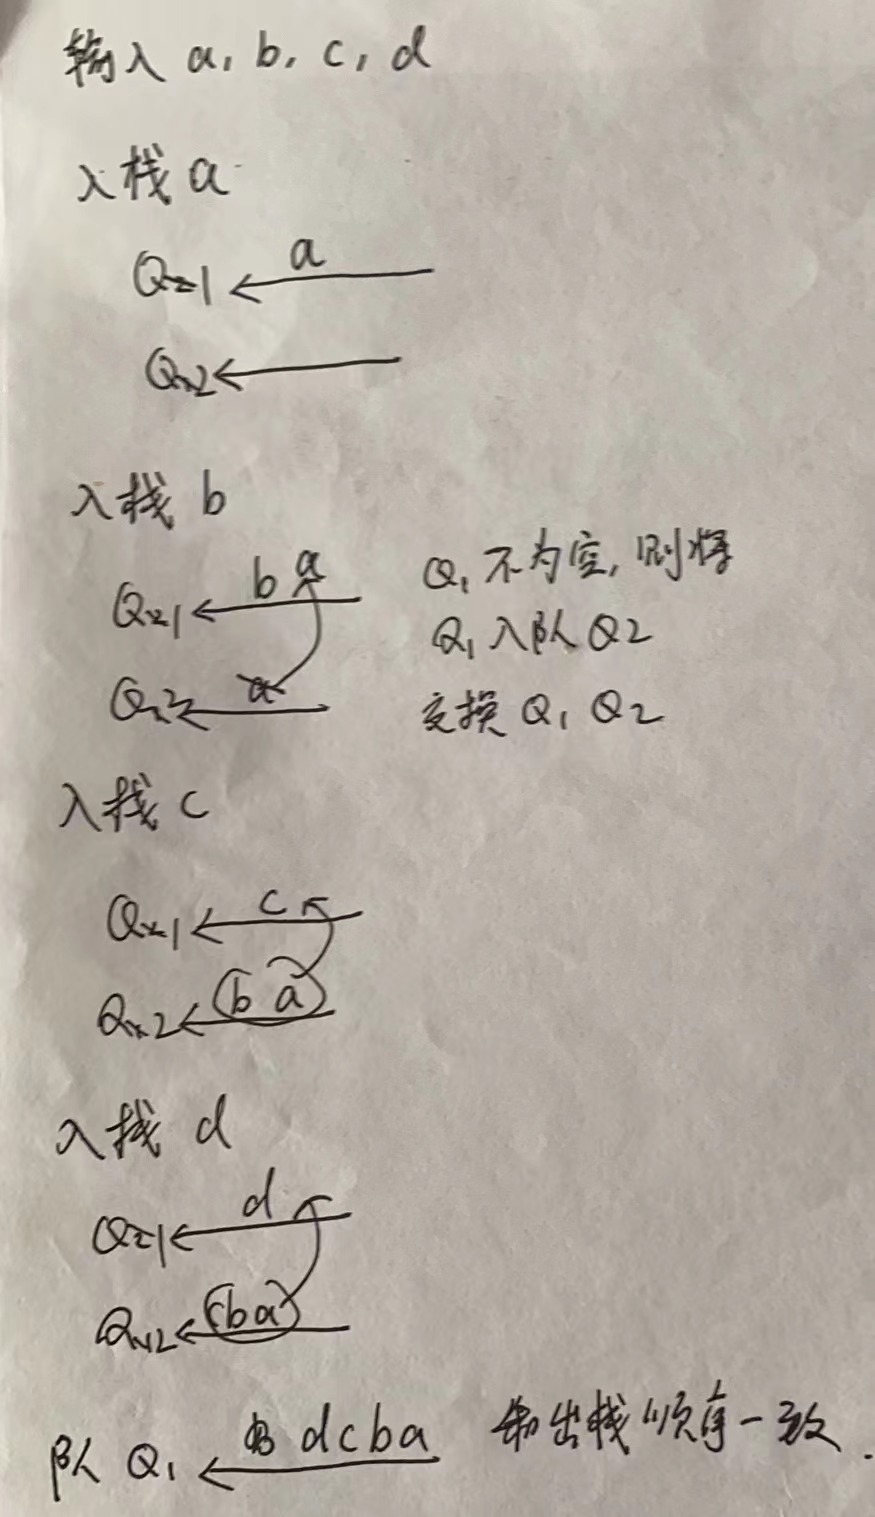 输入 a, b, c, d
入栈 a
Q=1 ← a
Q=2 ←
入栈 b
Q=1 ← b a
Q=2 ← a
Q1 不为空, 则将
Q1 入队 Q2
交换 Q1 Q2
入栈 c
Q=1 ← c
Q=2 ← (b a)
入栈 d
Q=1 ← d
Q=2 ← (cba)
队 Q1 ← dcba
和出栈顺序一致.